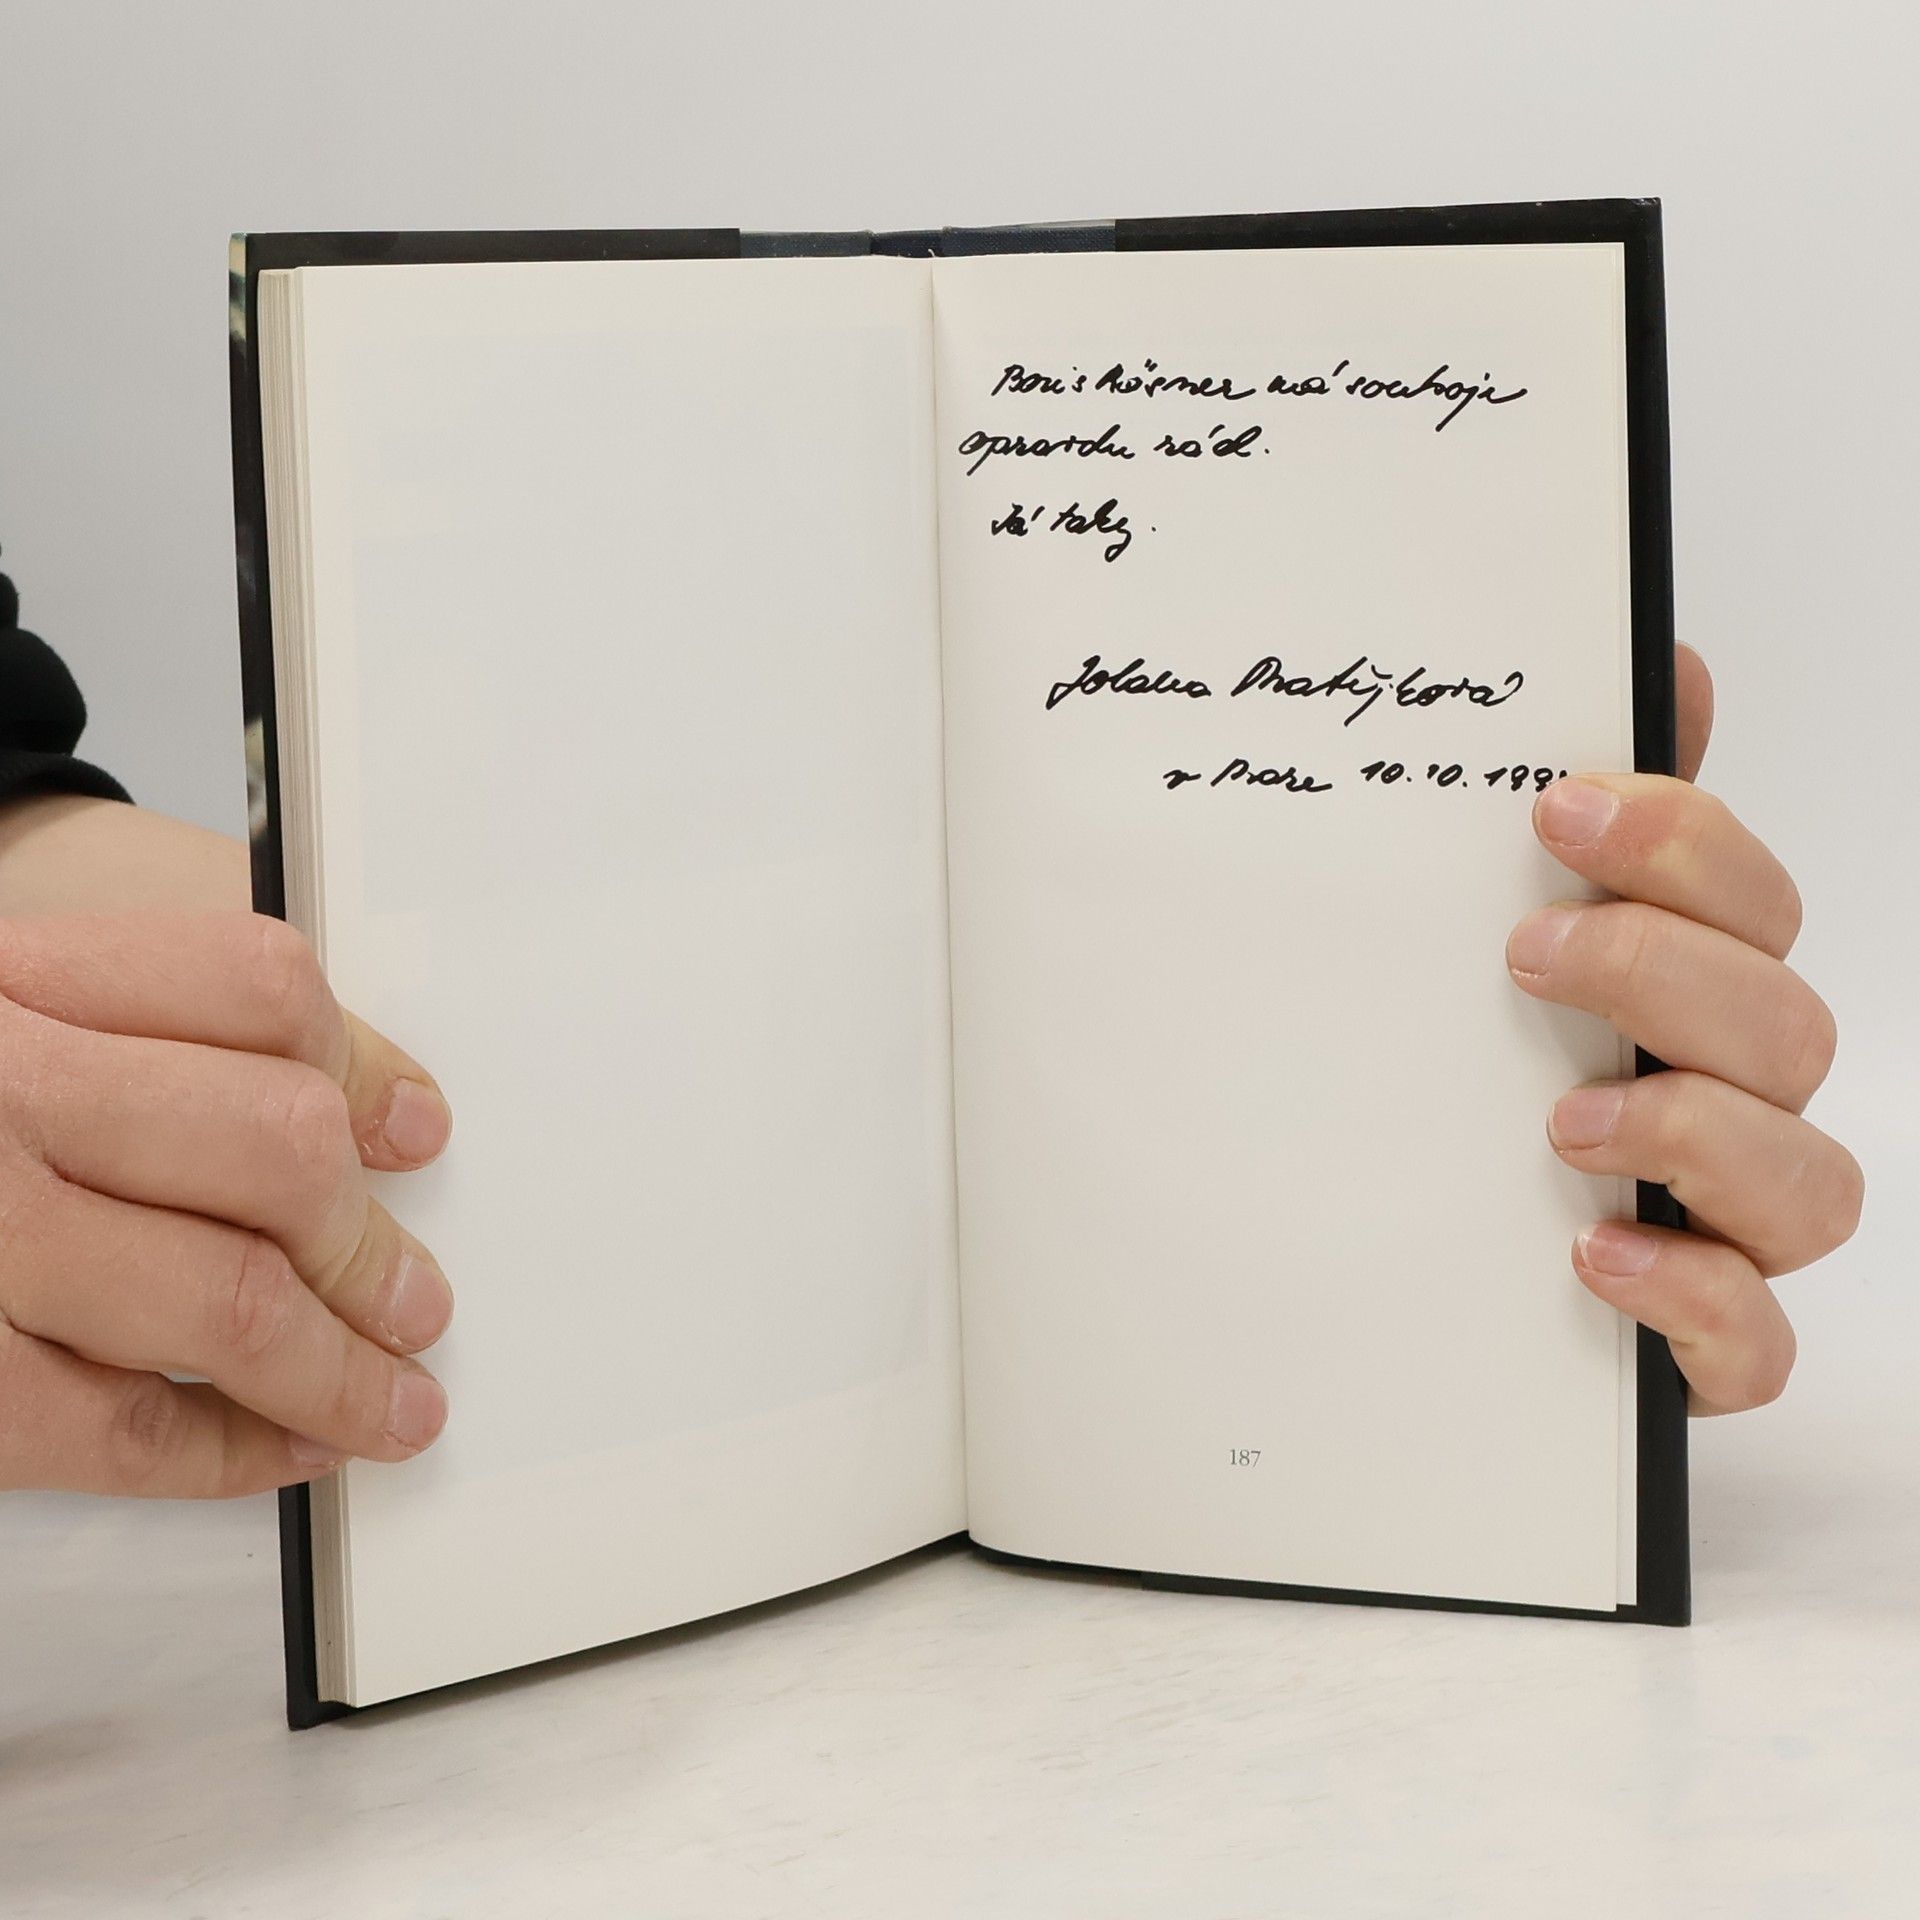 Boris Rösner má souboje
opravdu rád.
Já taky.
Jolana Matějková
v Praze 10. 10. 199
187